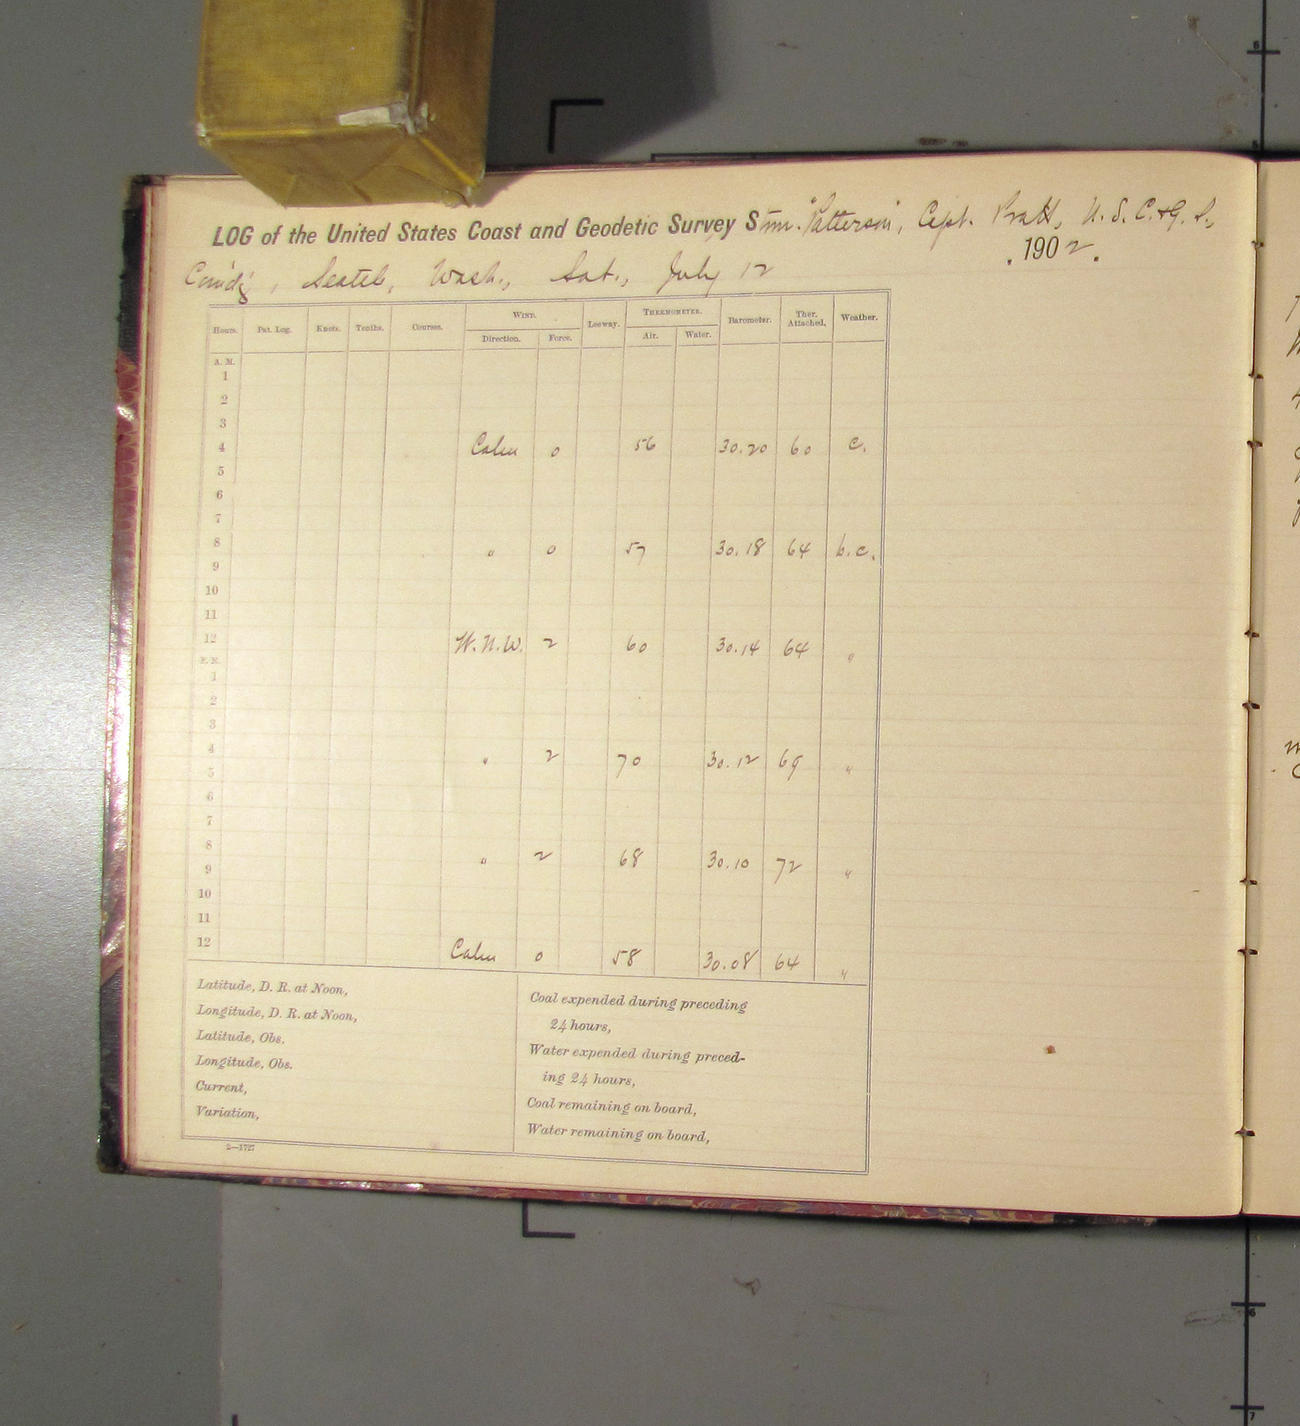 LOG of the United States Coast and Geodetic Survey Stmr. "Patterson", Capt. Pratt, U. S. C. & G. S.,
Com'd'g, Seatle, Wash., Sat., July 12, 1902.
Hours. Pat. Log. Knots. Tenths. Courses. WIND. Leeway. THERMOMETER. Barometer. Ther. Attached. Weather.
Direction. Force. Air. Water.
A. M.
1
2
3
4 Calm 0 56 30.20 60 c.
5
6
7
8 " 0 57 30.18 64 b.c.
9
10
11
12 W.N.W. 2 60 30.14 64 "
P. M.
1
2
3
4 " 2 70 30.12 69 "
5
6
7
8 " 2 68 30.10 72 "
9
10
11
12 Calm 0 58 30.08 64 "
Latitude, D. R. at Noon,
Longitude, D. R. at Noon,
Latitude, Obs.
Longitude, Obs.
Current,
Variation,
Coal expended during preceding
24 hours,
Water expended during preced-
ing 24 hours,
Coal remaining on board,
Water remaining on board,
2—1727
6
7